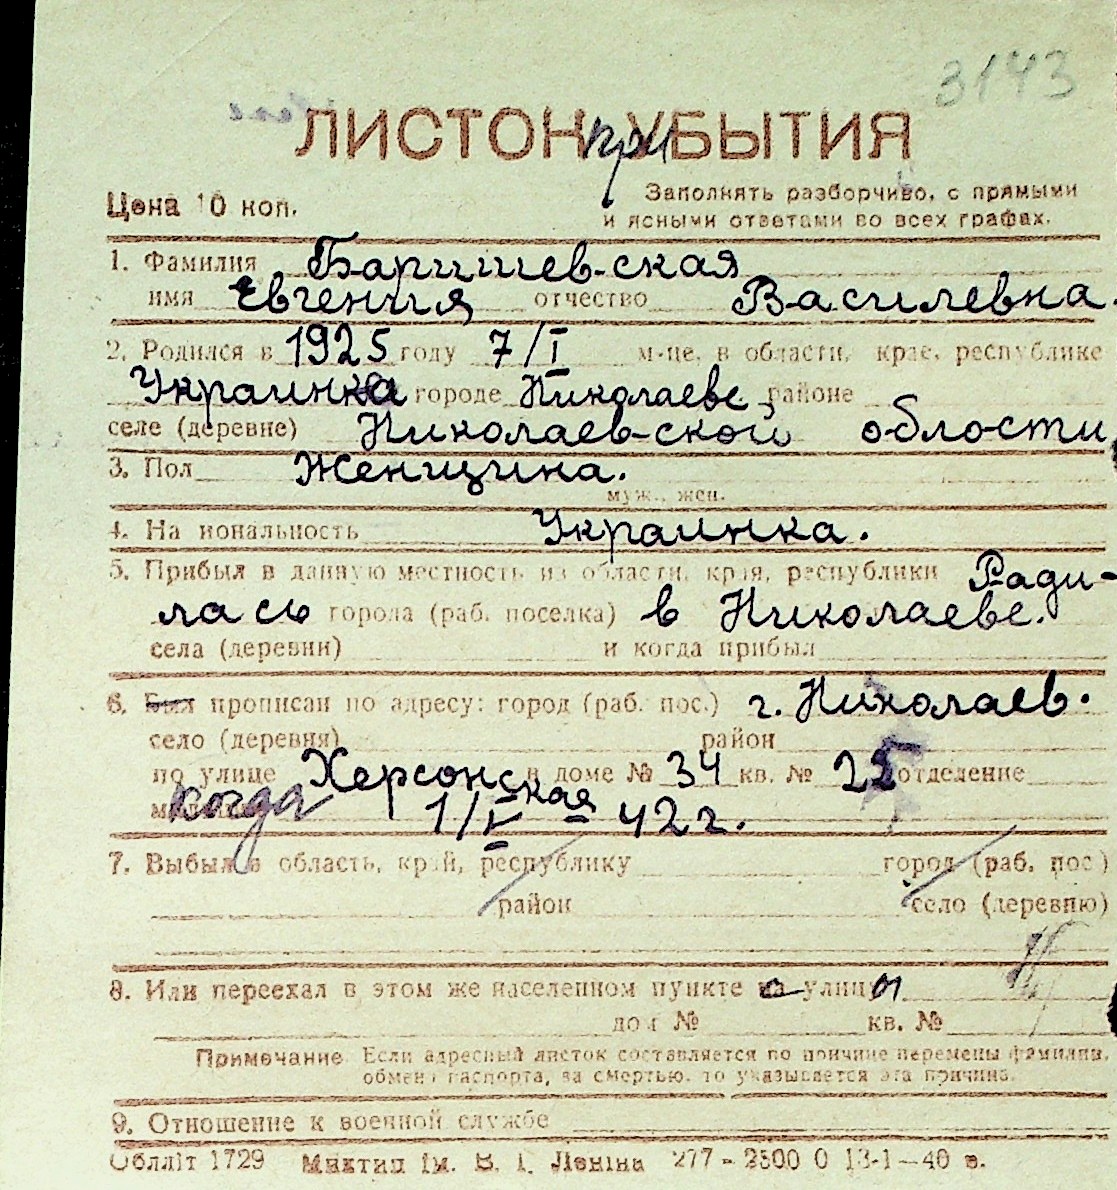 3143
ЛИСТОК при УБЫТИЯ
Цена 10 коп.
Заполнять разборчиво, с прямыми
и ясными ответами во всех графах.
1. Фамилия Баришевская
имя Евгения отчество Василевна.
2. Родился в 1925 году 7/I м-це, в области, крае, республике
Украинка городе Николаеве, районе
селе (деревне) Николаевской облости
3. Пол Женщина.
муж., жен.
4. На иональность Украинка.
5. Прибыл в данную местность из области, края, республики Ради-
лась города (раб. поселка) в Николаеве.
села (деревни) и когда прибыл
6. Был прописан по адресу: город (раб. пос.) г. Николаев.
село (деревня) район
по улице Херсонская в доме № 34 кв. № 25 отделение
когда 1/V - 42 г.
7. Выбыл в область, край, республику город (раб. пос.)
район село (деревню)
8. Или переехал в этом же населенном пункте с улицы
дом № кв. №
Примечание. Если адресный листок составляется по причине перемены фамилии,
обмена паспорта, за смертью, то указывается эта причина.
9. Отношение к военной службе
Облліт 1729 Миктип ім. В. І. Леніна 277 - 2500 0 13-1-40 в.